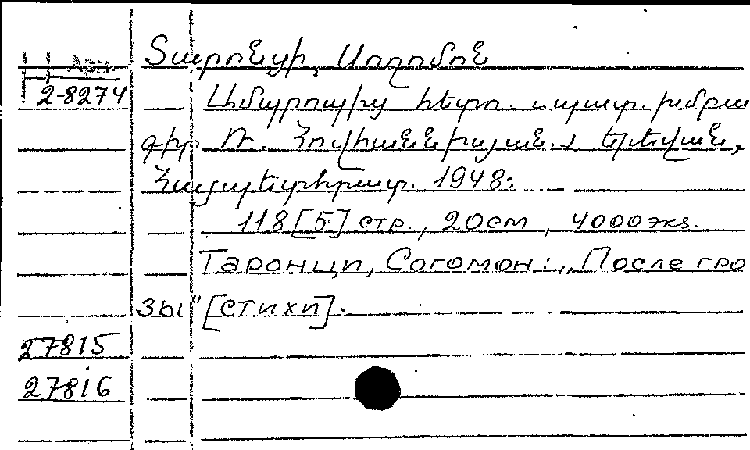 Տարոնցի, Սողոմոն
Арм.
2-8274
Ամպրոպից հետո. պատ. խմբա
գիր Ռ. Հովհաննիսյան. Երևան,
Հայպետհրատ. 1948:
118[5] стр., 20см, 4000экз.
Таронци, Согомон:, После гро
зы" [стихи].
27815
27816